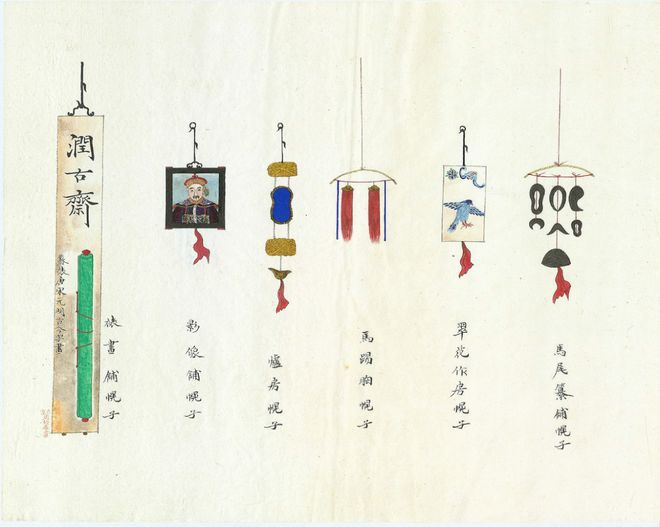 馬尾纂舖幌子
翠花作房幌子
馬踢胸幌子
爐房幌子
影像舖幌子
裱畫舖幌子
潤古齋
蘇裱唐宋元明古今字畫